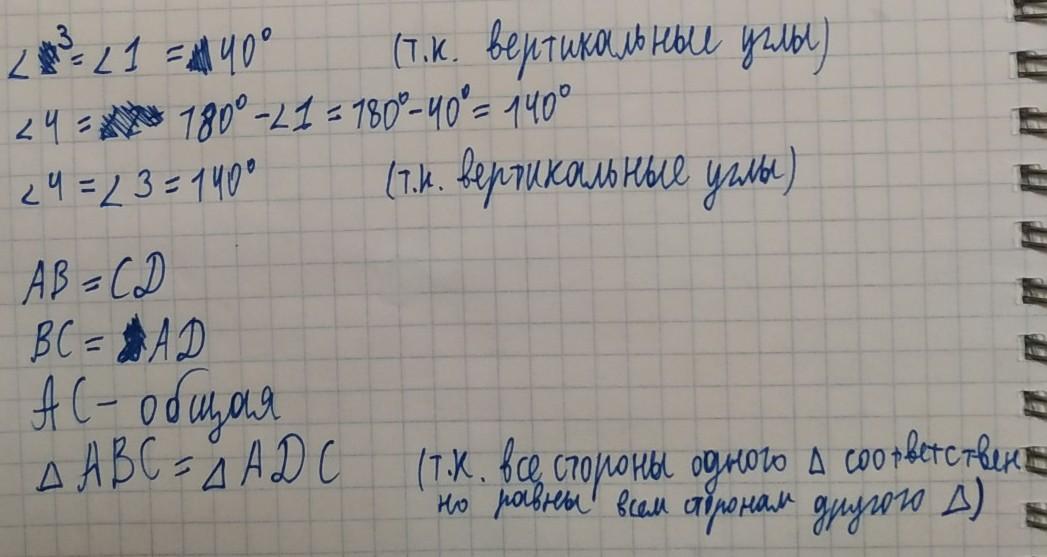 ∠3 = ∠1 = 40° (т.к. вертикальные углы)
∠4 = 180° - ∠1 = 180° - 40° = 140°
∠4 = ∠3 = 140° (т.к. вертикальные углы)
AB = CD
BC = AD
AC - общая
△ABC = △ADC (т.к. все стороны одного △ соответствен
но равны всем сторонам другого △)